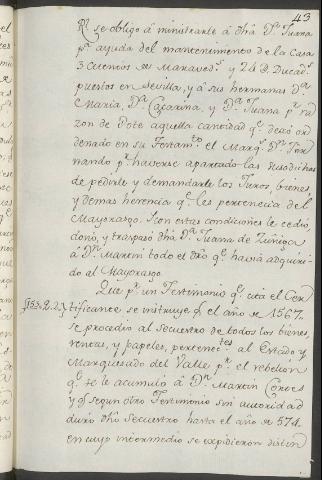 43
Rl se obligó á ministrarle á dhã Dª Juana
pª ayuda del mantenimento de la Casa
3 Cuentos de Maravedˢ y 24 Ducadˢ
puertos en Sevilla, y á sus hermanas Dª
Maria, Dª Catarina, y Dª Juana pʳ ra
zon de Dote aquella cantidad qᵉ dexó or
denado en su Testamᵗᵒ el Marqˢ Dⁿ Fer
nando pʳ haverse apartado las susodichas
de pedirle y demandarle los Juros, bienes,
y demas herencia qᵉ les pertenecia del
Mayorasgo. Con estas condiciones le cedió,
donó, y traspasó dhã Dª Juana de Zuñiga
á Dⁿ Martin todo el dro qᵉ havia adquiri
do al Mayorasgo.
Que pʳ un Testimonio qᵉ cita el Cer
tificante, se instruye qᵉ el año de 1567.
se procedio al Secuestro de todos los bienes,
rentas, y papeles, pertenecᵗᵉˢ al Estado y
Marquesado del Valle pʳ el rebelion
qᵉ se le acumuló á Dⁿ Martin Cortes
y qᵉ segun otro Testimonio sin autoridad
duró dhõ Secuestro hasta el año de 574.
en cuyo intermedio se expidieron distin